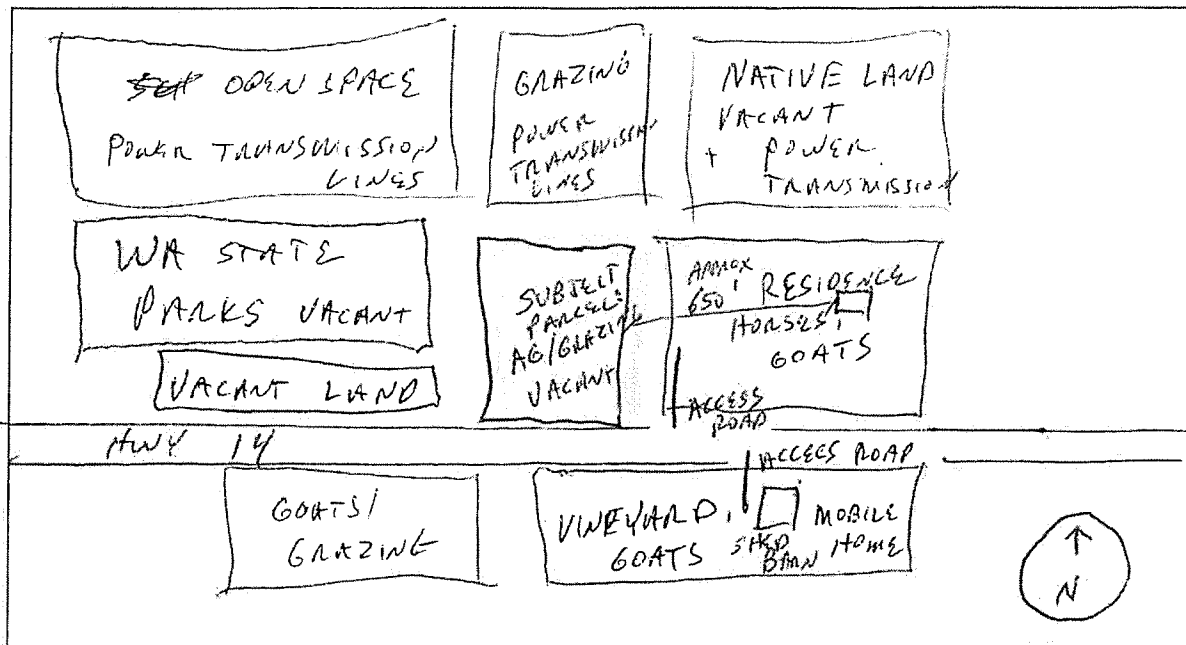 OPEN SPACE
POWER TRANSMISSION
LINES
GRAZING
POWER
TRANSMISSION
LINES
NATIVE LAND
VACANT
+ POWER
TRANSMISSION
WA STATE
PARKS VACANT
VACANT LAND
SUBJECT
PARCEL:
AG/GRAZING
VACANT
APPROX
650'
RESIDENCE
HORSES,
GOATS
ACCESS
ROAD
HWY 14
ACCESS ROAD
GOATS/
GRAZING
VINEYARD,
GOATS
SHED
BARN
MOBILE
HOME
N